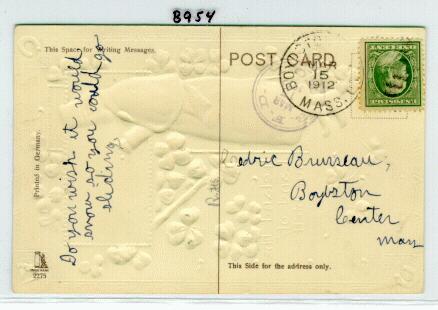 8954
This Space for Writing Messages.
POST CARD
Do you wish it would
snow so you could go
sliding,
Printed in Germany.
TRADE MARK
2275
MAR
15
1912
MASS.
MAR
Bruneau,
Boylston
Center
Mass
This Side for the address only.